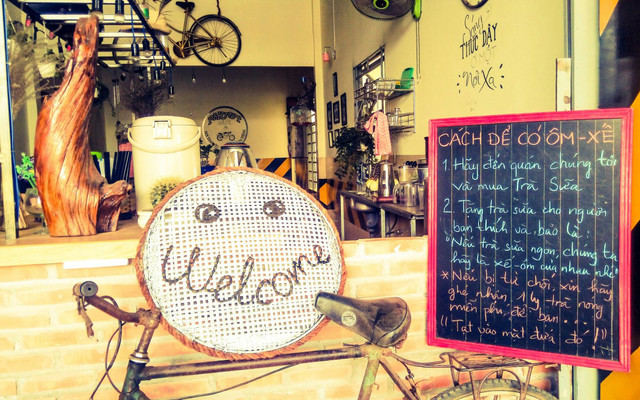 Cứng
THỨC DẬY
Nơi Xa
Welcome
CÁCH ĐỂ CÓ ÔM-XẾ
1. Hãy đến quán chúng tôi
và mua Trà Sữa.
2. Tặng trà sữa cho người
bạn thích và bảo là
"Nếu trà sữa ngon, chúng ta
hãy là xế-ôm của nhau nhé"
* Nếu bị từ chối, xin hãy
ghé nhận 1 ly trà nóng
miễn phí, để bạn
"Tạt vào mặt đứa đó!!"